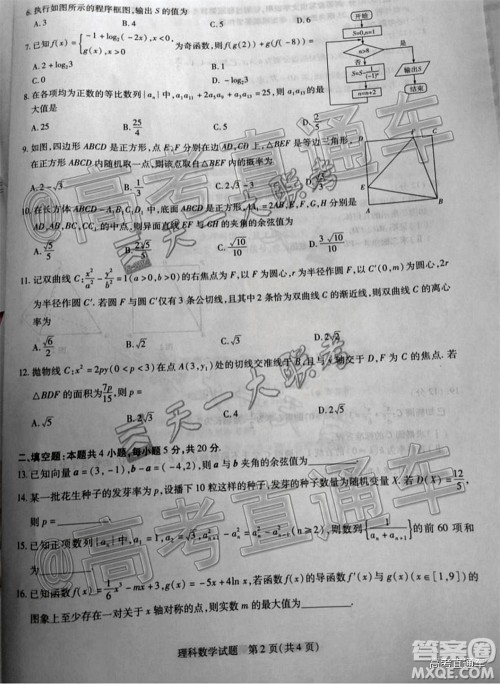 6. 执行如图所示的程序框图,输出 S 的值为
A. 3 B. 4 C. 5 D. 6
开始
S=0,n=1
n>8
是
否
输出S
结束
n=n+2
7. 已知 f(x)={ -1+log₂(-2x),x<0, g(x),x>0 为奇函数,则 f(g(2))+g(f(-8))=
A. 2+log₂3 B. 1
C. 0 D. -log₂3
8. 在各项均为正数的等比数列{aₙ}中,a₁a₁₁+2a₅a₉+a₃a₁₃=25,则 a₁a₁₃的最
大值是
A. 25 B. 25/4 C. 5 D. 2/5
9. 如图,四边形 ABCD 是正方形,点 E,F 分别在边 AD,CD 上,△BEF 是等边三角形,
在正方形 ABCD 内随机取一点,则该点取自△BEF 内的概率为
A. 2-√3 B. 1/3 C. 2√3-3
10. 在长方体 ABCD-A₁B₁C₁D₁ 中,底面 ABCD 是正方形,AA₁=2AB,E,F,G,H 分别是
的中点,则异面直线 EF 与 GH 的夹角的余弦值为
C. √10/10 D. 3√10/10
11. 记双曲线 C: x²/a²-y²/b²=1(a>0,b>0)的右焦点为 F,以 F 为圆心,r 为半径作圆 F,以 C′(0,m)为圆心,2r
为半径作圆 C′. 若圆 F 与圆 C′仅有 3 条公切线,且其中 2 条恰为双曲线 C 的渐近线,则双曲线 C 的离心
率为
A. √6/2 B. √2 C. √3 D. √5
12. 抛物线 C:x²=2py(0<p<3)在点 A(3,y₁)处的切线交准线于 B,且与 x 轴交于 D,F 为 C 的焦点. 若
△BDF 的面积为7p/15,则 p=
A. √5 B. 2√3 C. 1 D. 2
二、填空题:本题共 4 小题,每小题 5 分,共 20 分.
13. 已知向量 a=(3,-1),b-a=(-4,2),则 a 与 b 夹角的余弦值为
14. 某一批花生种子的发芽率为 p,设播下 10 粒这样的种子,发芽的种子数量为随机变量 X. 若 D(X)=12/5,
则 p=
15. 已知正项数列{aₙ}中,
(n≥2),则数列{1/(aₙ+aₙ₊₁)}的前 60 项和
为
16. 已知函数 f(x)=1/6x³-mx+3,g(x)=-5x+4lnx,若函数 f(x)的导函数 f′(x)与 g(x)(x∈[1,9])的
图象上至少存在一对关于 x 轴对称的点,则实数 m 的最大值为
理科数学试题 第 2 页(共 4 页)
@高考直通车
天一大联考
天一大联考
@高考直通车
答案圈
MXQE.COM
高考直通车